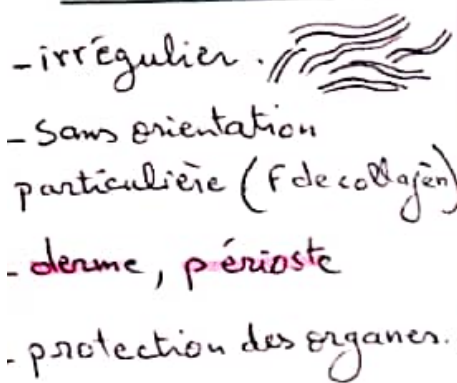 - irrégulier.
- Sans orientation
particulière (F de collagèn)
- derme, périoste
- protection des organes.